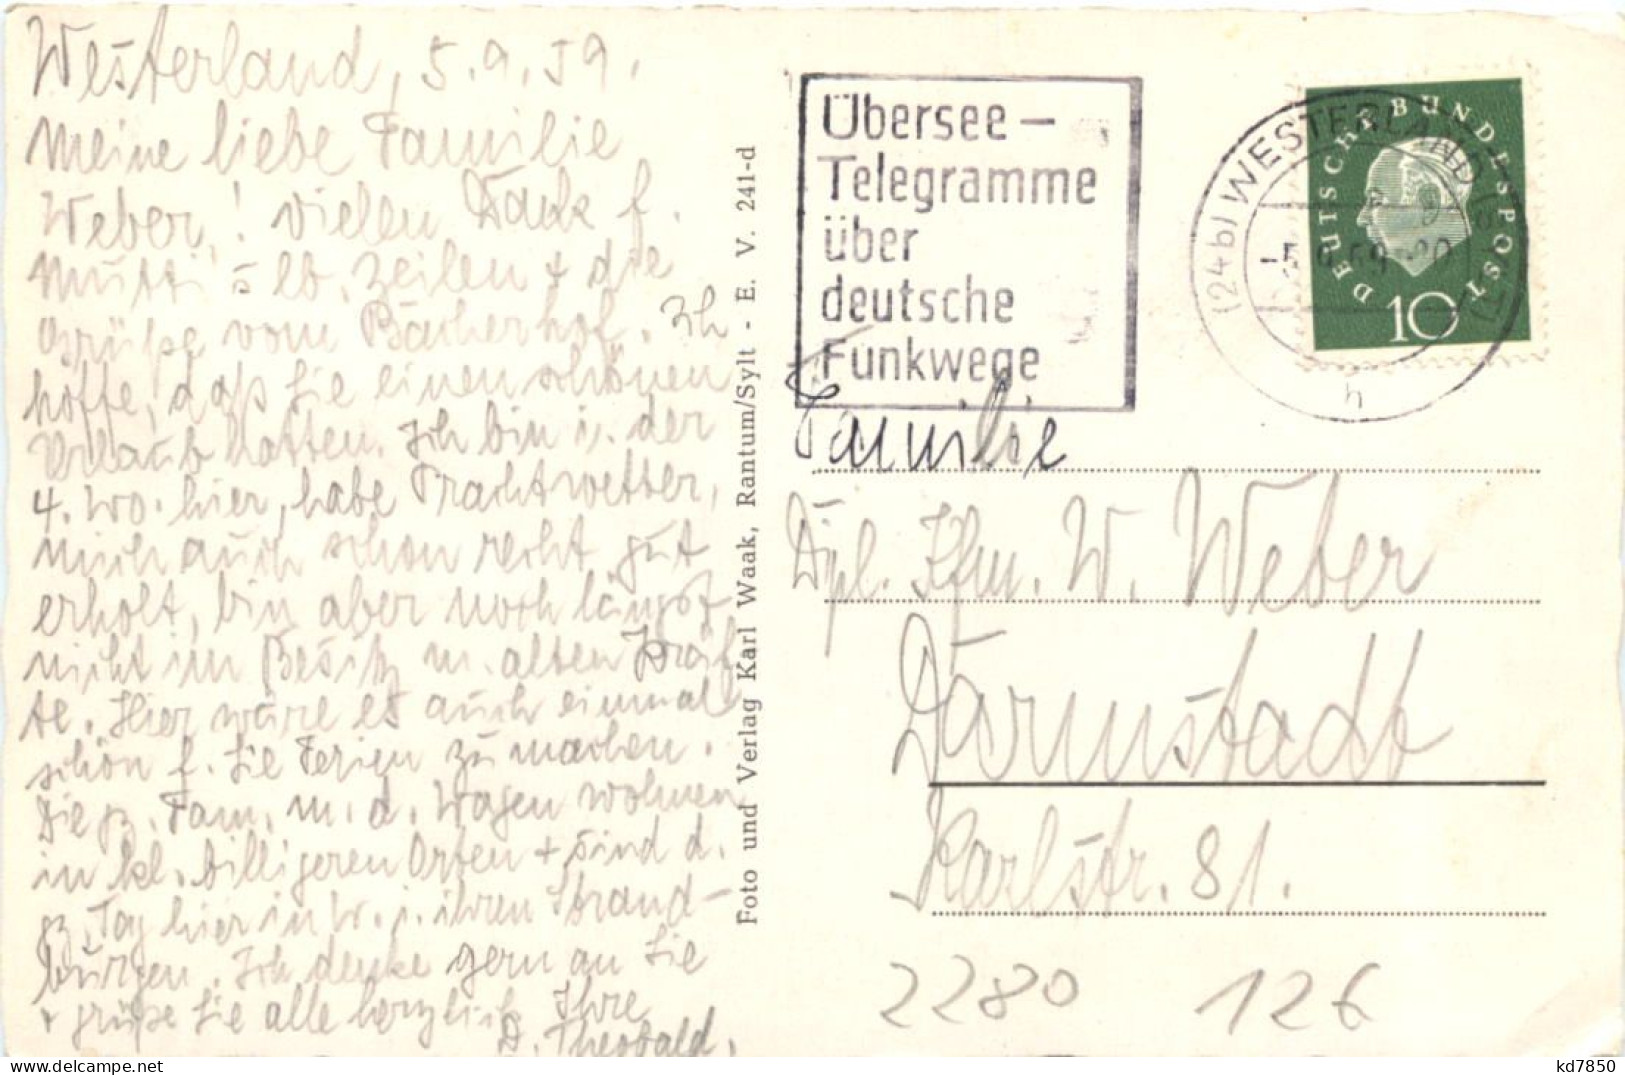 Westerland, 5.9.59.
Meine liebe Familie
Weber! Vielen Dank f.
Mutti's lb. Zeilen + die
Grüße vom Bäckerhof. Ich
hoffe, daß Sie einen schönen
Urlaub hatten. Ich bin i. der
4. Wo. hier, habe Prachtwetter,
mich auch schon recht gut
erholt, bin aber noch längst
nicht im Besitz m. alten Kräf
te. Hier wäre es auch einmal
schön f. Sie Ferien zu machen.
Die gz. Fam. m. d. Wagen wohnen
in kl. billigeren Orten + sind d.
gz. Tag hier in W. i. ihren Strand-
burgen. Ich denke gern an Sie
+ grüße Sie alle herzlich Ihre
D. Theobald.
Foto und Verlag Karl Waak, Rantum/Sylt - E. V. 241-d
Übersee-
Telegramme
über
deutsche
Funkwege
(24b) WESTERLAND (SYLT)
-5.9.59-20
h
DEUTSCHE BUNDESPOST
10
Familie
Dipl. Kfm. W. Weber
Darmstadt
Karlstr. 81.
2280 126
kd7850